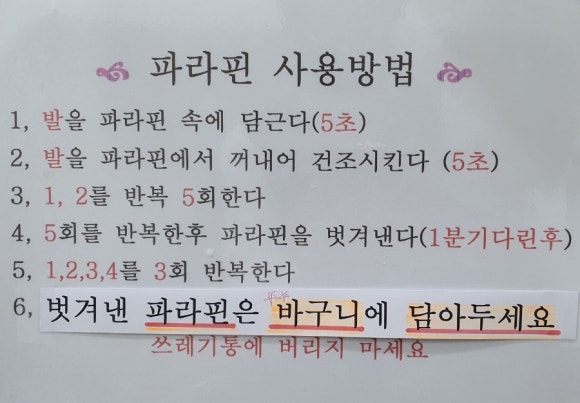 파라핀 사용방법
1, 발을 파라핀 속에 담근다(5초)
2, 발을 파라핀에서 꺼내어 건조시킨다 (5초)
3, 1, 2를 반복 5회한다
4, 5회를 반복한후 파라핀을 벗겨낸다(1분기다린후)
5, 1,2,3,4를 3회 반복한다
6, 벗겨낸 파라핀은 바구니에 담아두세요
쓰레기통에 버리지 마세요